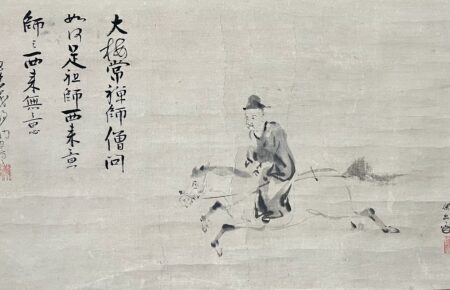 大梅常禅師僧問
如何是祖師西来意
師云西来無意